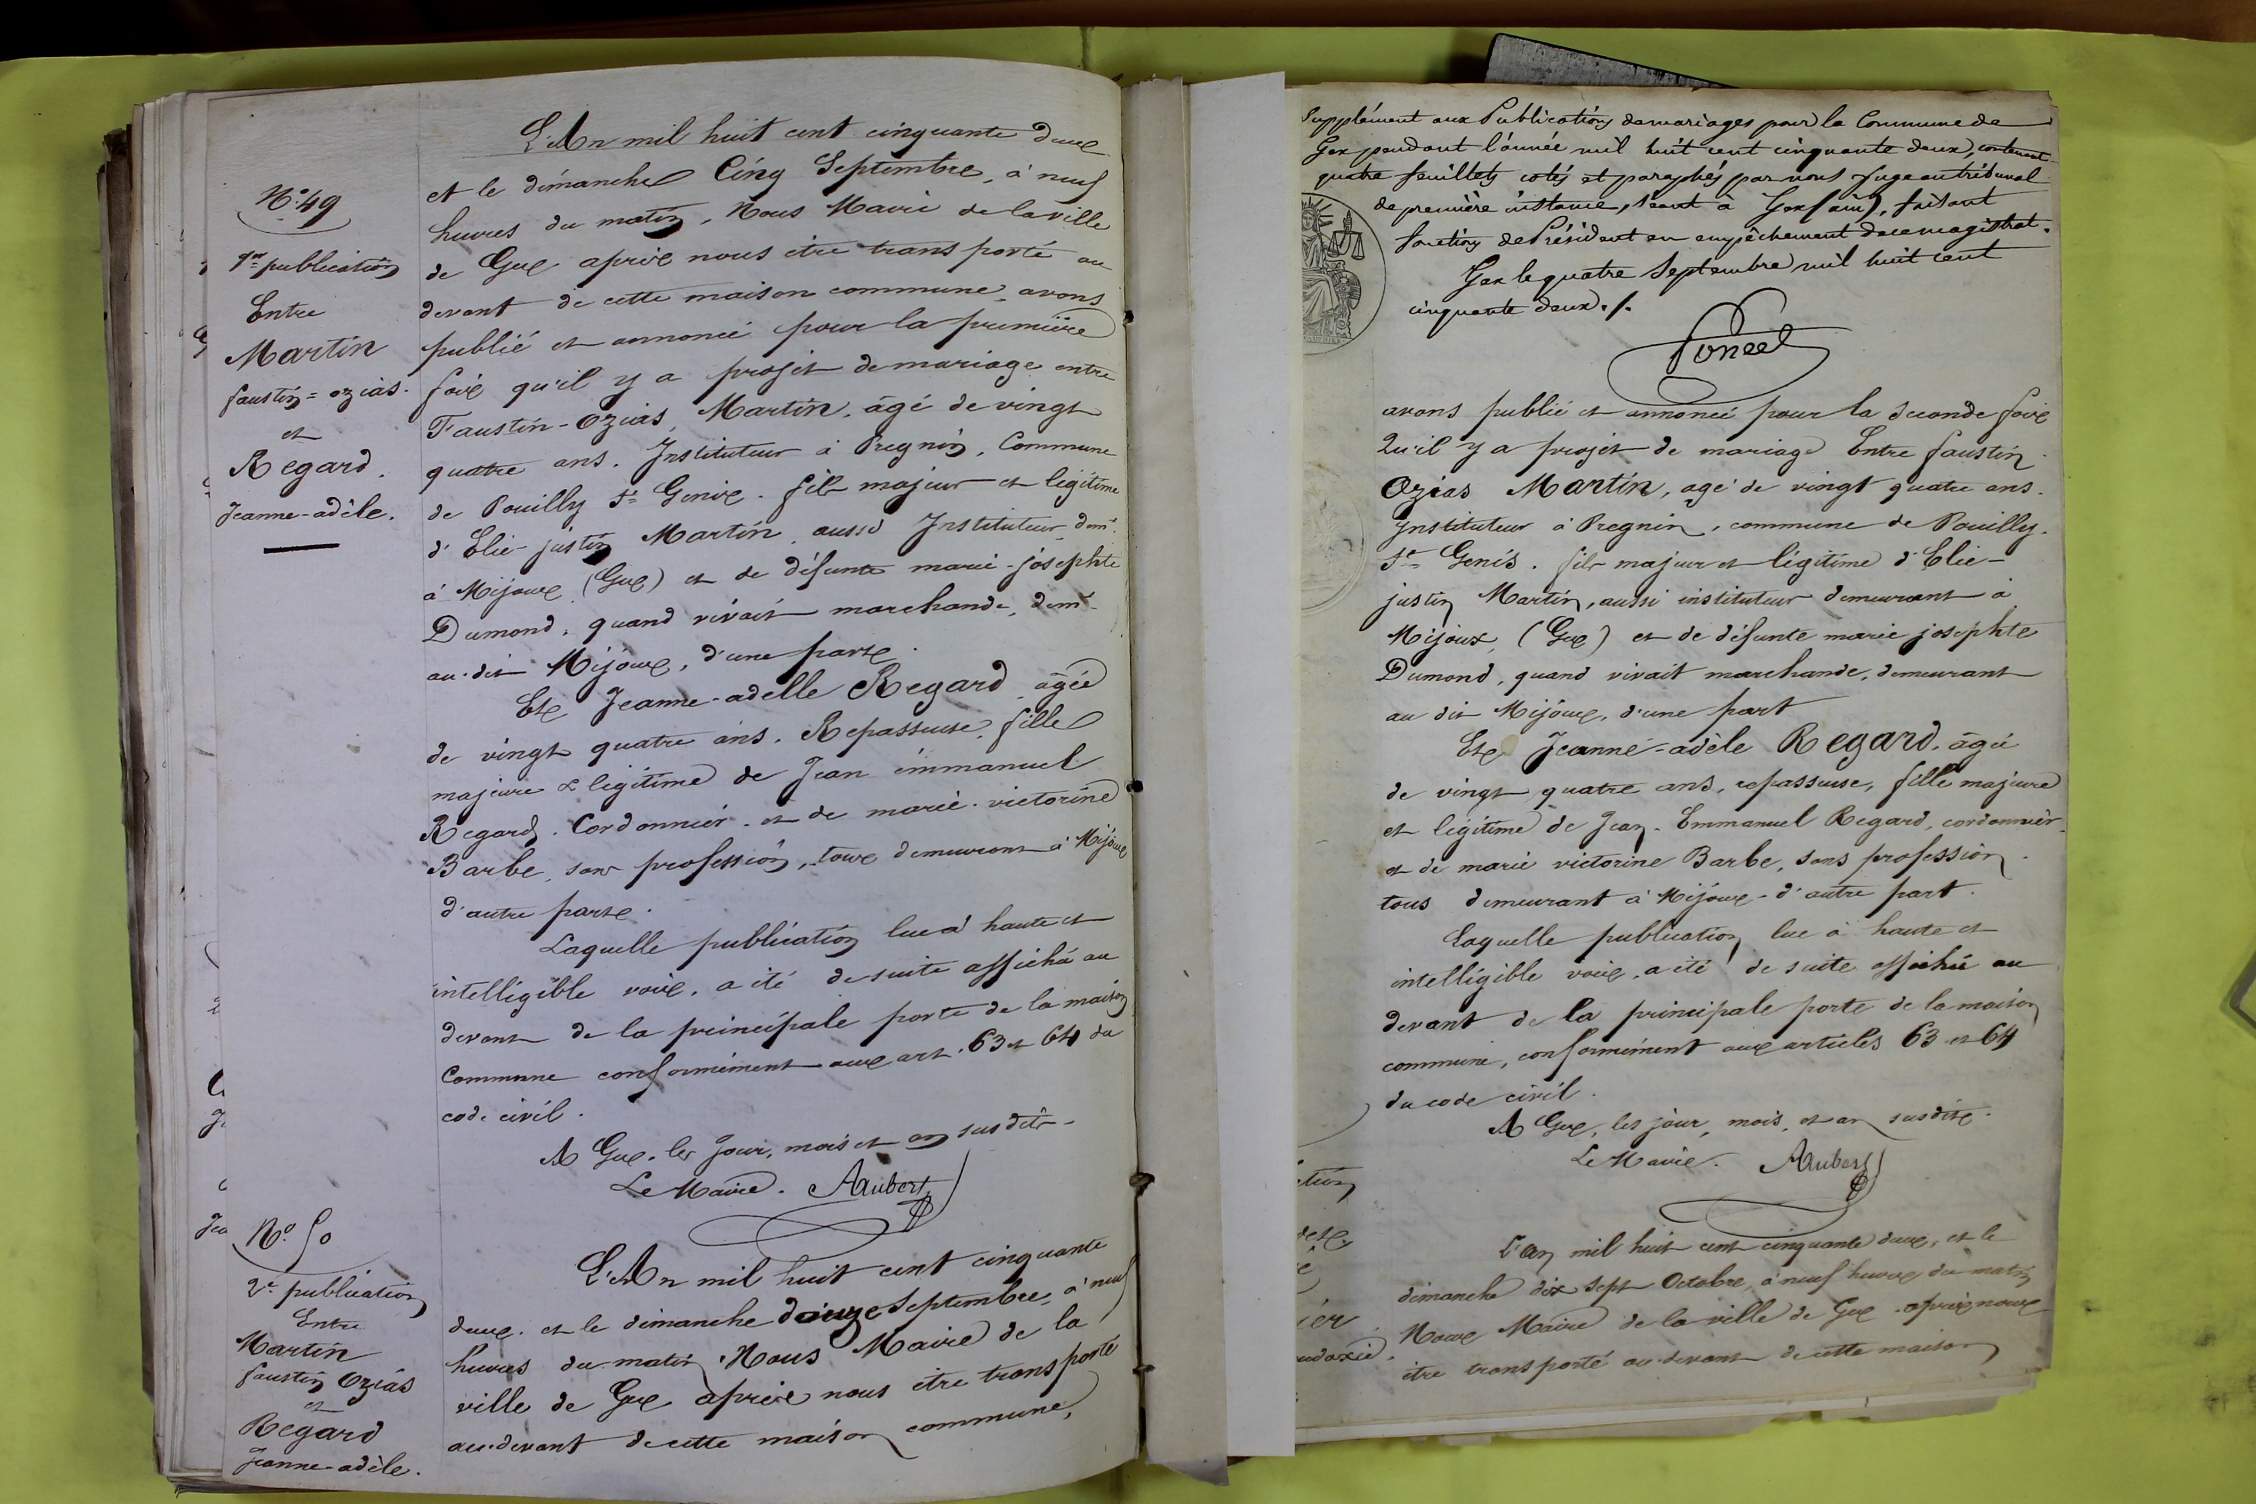 N.o 49
1re publication
Entre
Martin
faustin=ozias.
et
Regard.
Jeanne-adèle.
L'An mil huit cent cinquante deux
et le dimanche Cinq Septembre, à neuf
heures du matin, Nous Maire de la ville
de Gex après nous être transporté au
devant de cette maison commune, avons
publié et annoncé pour la première
fois qu'il y a projet de mariage entre
Faustin-Ozias, Martin, âgé de vingt
quatre ans. Instituteur à Pregnin, Commune
de Pouilly St Genix. fils majeur et légitime
d'Elie-justin Martin, aussi Instituteur demt
à Mijoux (Gex) et de défunte marie-josephte
Dumond, quand vivait marchande, demt
au-dit Mijoux, d'une part.
Et Jeanne-adelle Regard, âgée
de vingt quatre ans. Repasseuse, fille
majeure & légitime de Jean immanuel
Regard. Cordonnier. et de marie-victorine
Barbe, sans profession, tous demeurant à Mijoux
d'autre part.
Laquelle publication lue à haute et
intelligible voix, a été de suite affiché au
devant de la principale porte de la maison
Commune conformément aux art. 63 et 64 du
code civil.
A Gex. les jour, mois et an susdits-
Le Maire. Aubert
N.o 50
2e publication
Entre
Martin
faustin Ozias
et
Regard
Jeanne-adèle.
L'An mil huit cent cinquante
deux. et le dimanche douze Septembre, à neuf
heures du matin, Nous Maire de la
ville de Gex après nous être transporté
au-devant de cette maison commune,
Supplément aux Publications de mariages pour la Commune de
Gex pendant l'année mil huit cent cinquante deux, contenant
quatre feuillets cotés et paraphés par nous Juge au tribunal
de première instance, séant à Gex (ain), faisant
fonction de Président en empêchement de ce magistrat.
Gex le quatre Septembre mil huit cent
cinquante deux./.
avons publié et annoncé pour la seconde fois
Qu'il y a projet de mariage Entre faustin
Ozias Martin, agé de vingt quatre ans.
Instituteur à Pregnin, commune de Pouilly.
St Genis. fils majeur et légitime d'Elie-
justin Martin, aussi instituteur demeurant à
Mijoux, (Gex) et de défunte marie josephte
Dumond, quand vivait marchande, demeurant
au dit Mijoux, d'une part
Et Jeanne-adèle Regard, âgée
de vingt quatre ans, repasseuse, fille majeure
et légitime de Jean-Emmanuel Regard, cordonnier.
et de marie victorine Barbe, sans profession.
tous demeurant à Mijoux-d'autre part.
Laquelle publication lue à haute et
intelligible voix, a été de suite affiché au
devant de la principale porte de la maison
commune, conformément aux articles 63 et 64
du code civil.
A Gex, les jour, mois, et an susdits.
Le Maire. Aubert
L'an mil huit cent cinquante deux, et le
dimanche dix sept Octobre, à neuf heures du matin
Nous Maire de la ville de Gex après nous
être transporté au-devant de cette maison